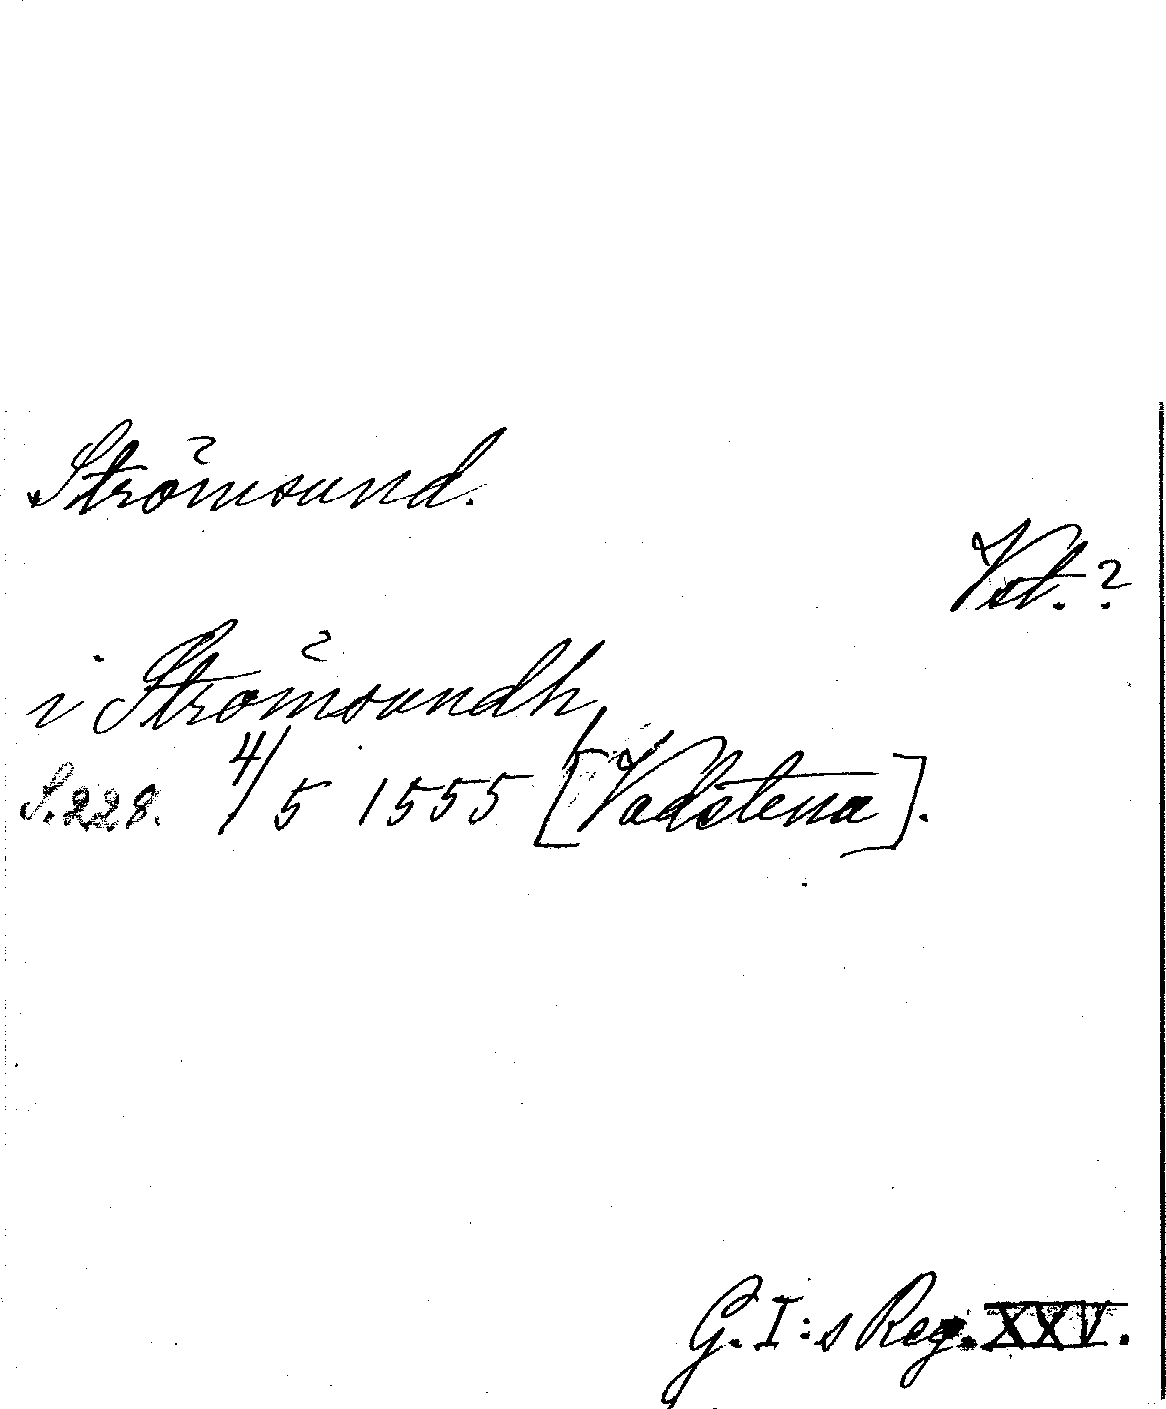 Strömsund.
Vst. ?
i Strömsundh,
S. 228. 4/5 1555 [Vadstena].
G. I:s Reg. XXV.